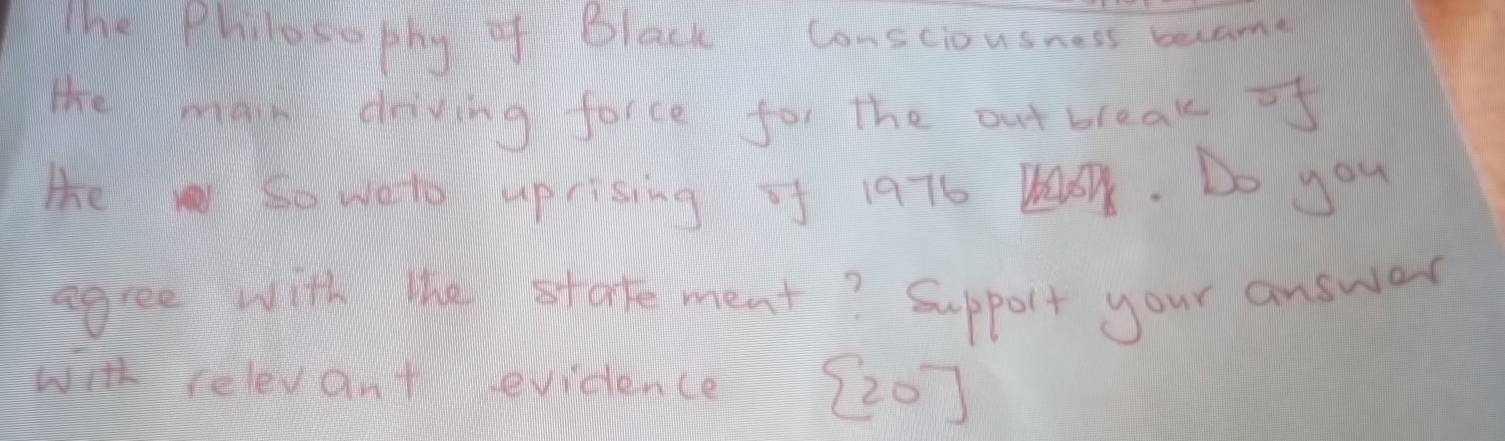 The Philosophy of Black Consciousness became
the main driving force for the outbreak of
the Soweto uprising of 1976 . Do you
agree with the statement? Support your answer
with relevant evidence [20]